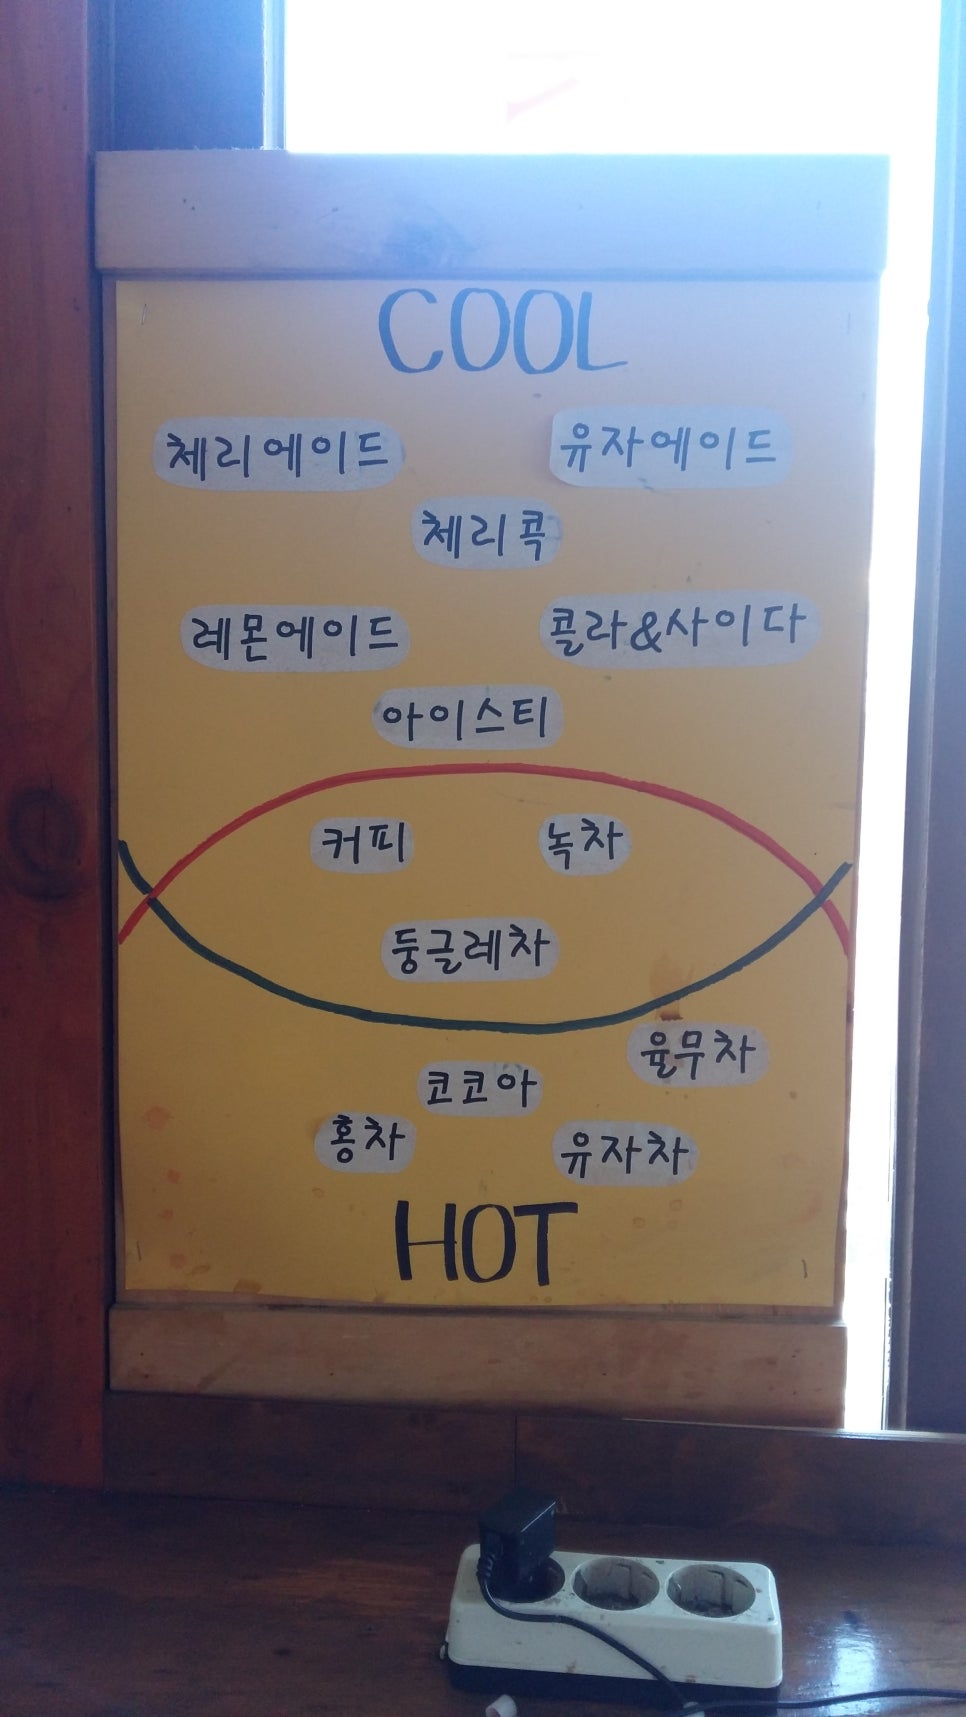 COOL
체리에이드 유자에이드
체리콕
레몬에이드 콜라&사이다
아이스티
커피 녹차
둥글레차
율무차
코코아
홍차 유자차
HOT